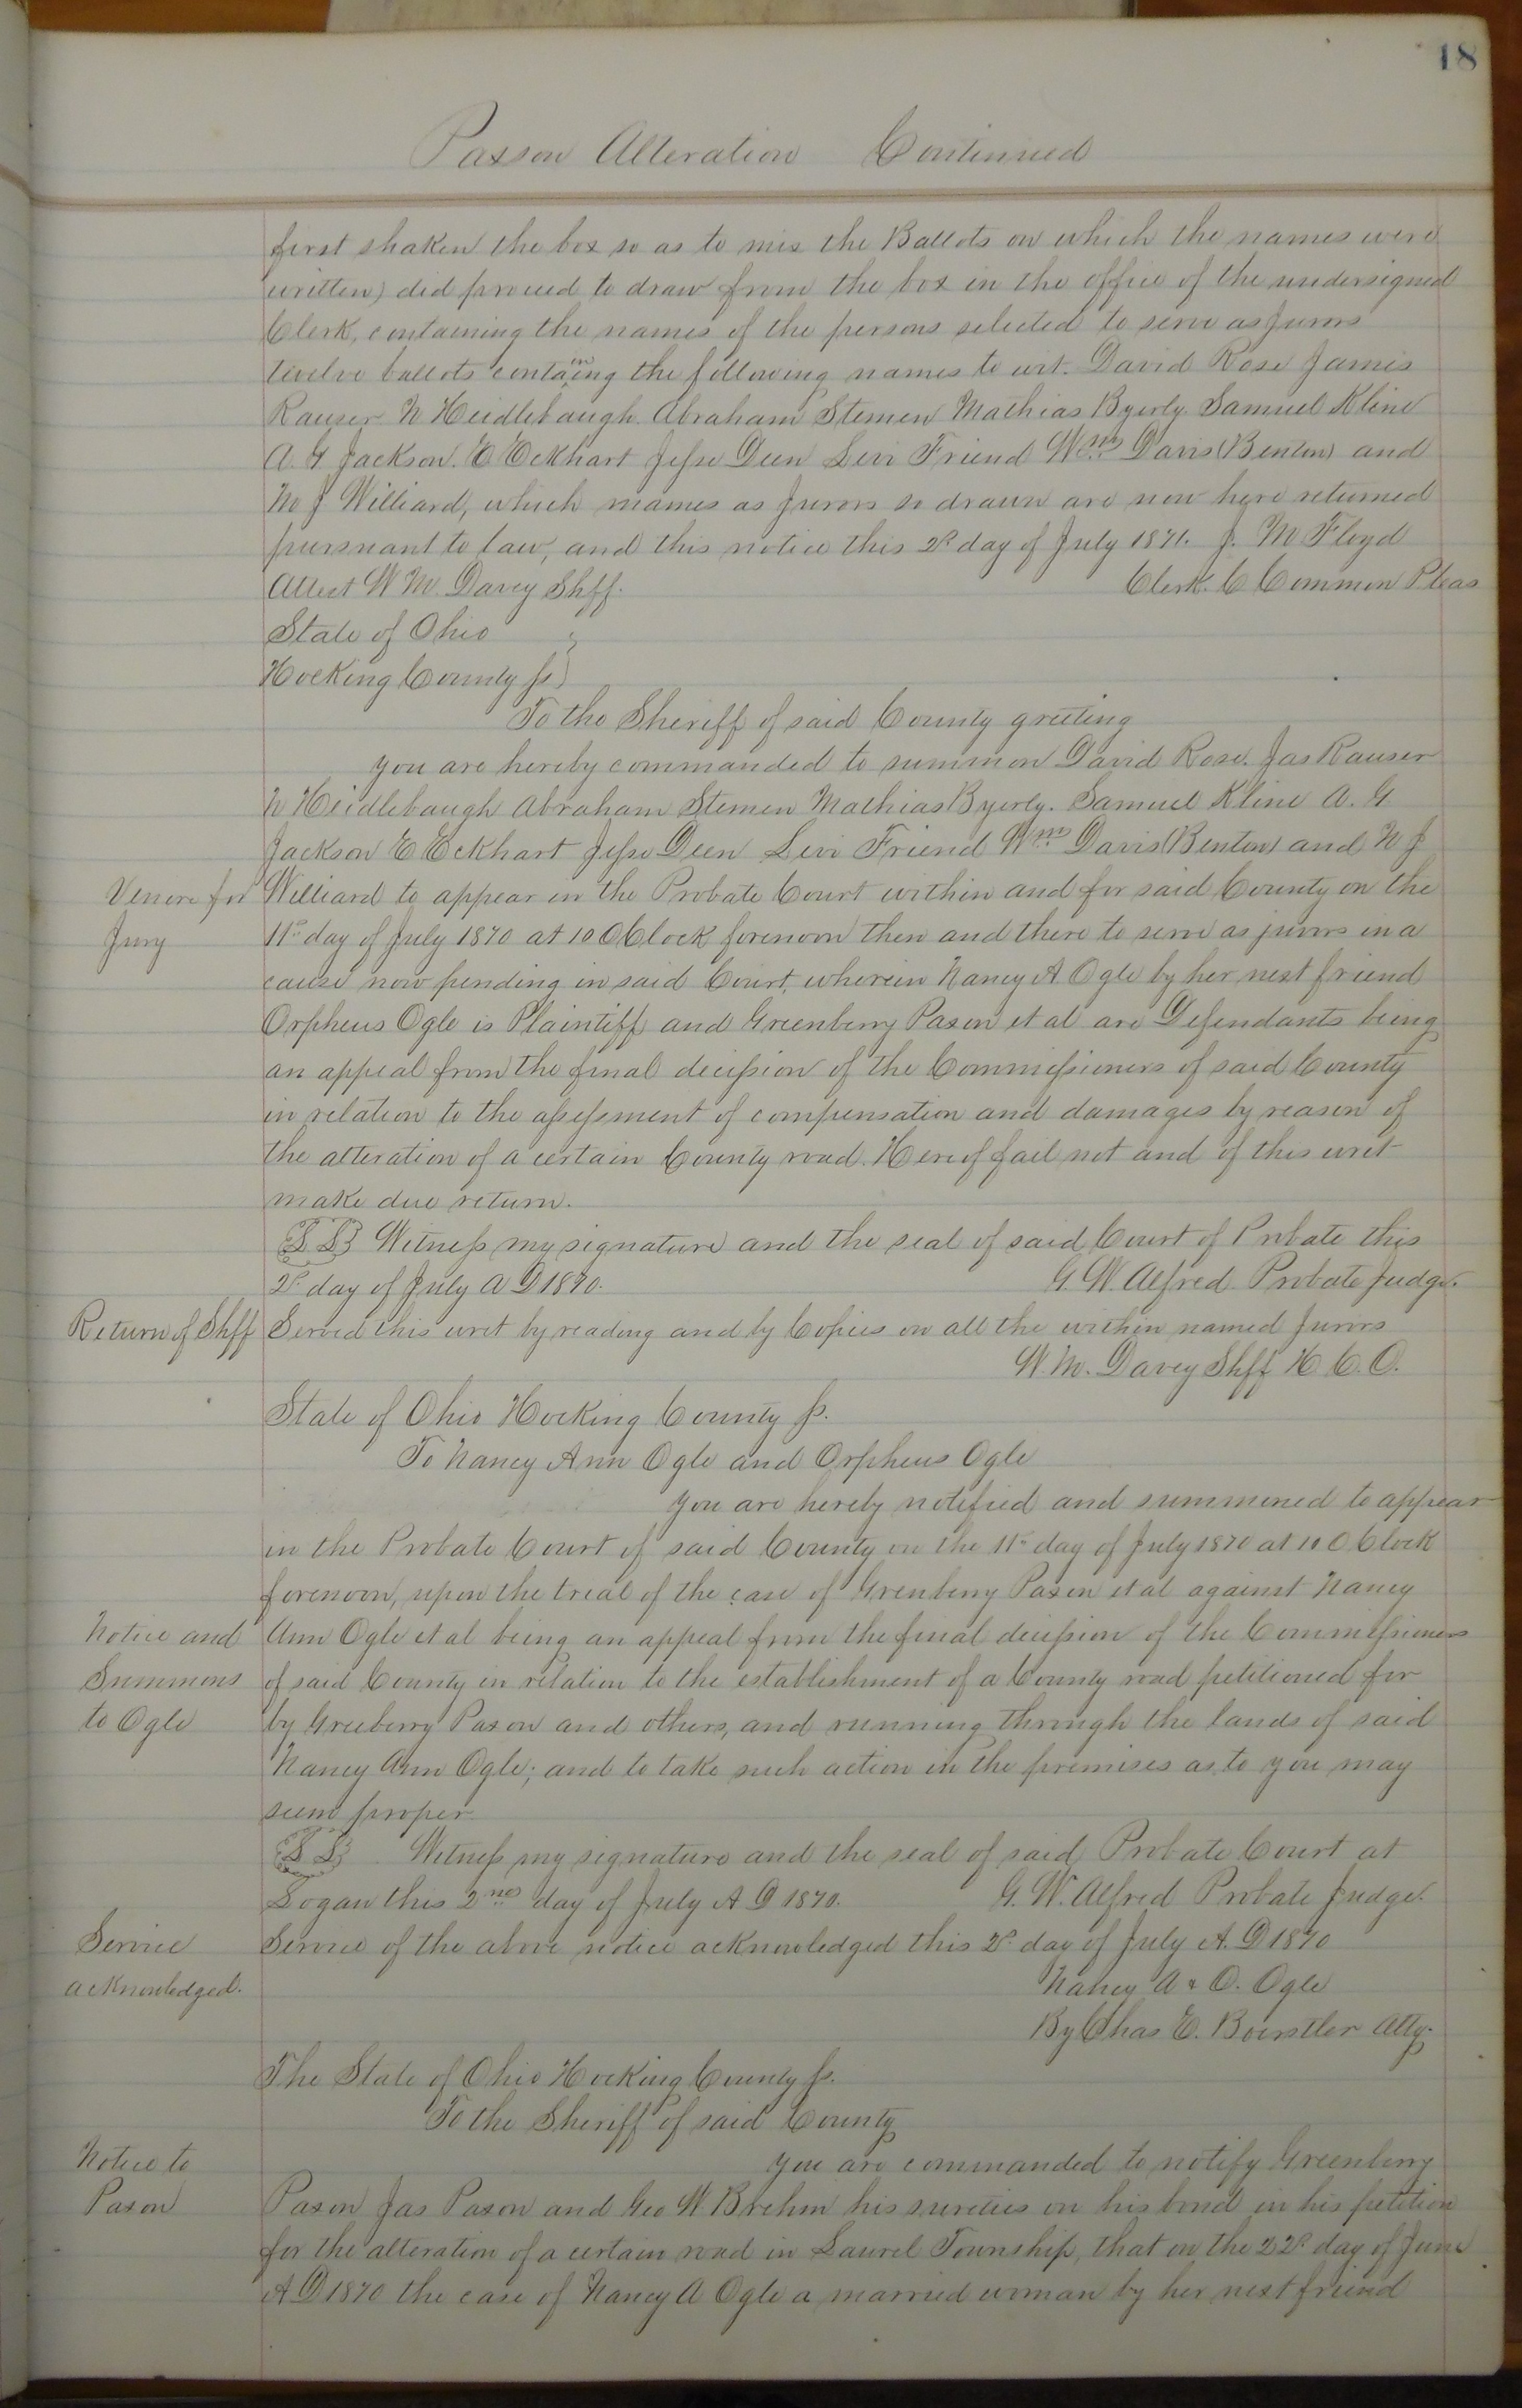 18
Paxson Alteration Continued
first shaken the box so as to mix the Ballots on which the names were
written) did proceed to draw from the box in the office of the undersigned
Clerk, containing the names of the persons selected to serve as Jurors
twelve ballots containing the following names to wit. David Rose James
Rauser N Heidlebaugh Abraham Stemen Mathias Byerly. Samuel Kline
A. G Jackson. E Eckhart Jesse Deen Levi Friend Wm Davis (Benton) and
W J Williard, which names as Jurors so drawn are now here returned
pursuant to law, and this notice this 2d day of July 1871. J. M Floyd
Attest W M. Davey Shff. Clerk. C Common Pleas
State of Ohio }
Hocking County ss }
To the Sheriff of said County greeting
you are hereby commanded to summon David Rose. Jas Rauser
N Heidlebaugh Abraham Stemen Mathias Byerly. Samuel Kline A. G
Jackson E Eckhart Jesse Deen Levi Friend Wm Davis (Benton) and W J
Venire for Williard to appear in the Probate Court within and for said County on the
Jury 11th day of July 1870 at 10 O Clock forenoon then and there to serve as jurors in a
cause now pending in said Court, wherein Nancy A Ogle by her next friend
Orpheus Ogle is Plaintiff and Greenberry Paxon et al are Defendants being
an appeal from the final decission of the Commissioners of said County
in relation to the assessment of compensation and damages by reason of
the alteration of a certain County road. Hereof fail not and of this writ
make due return.
L S Witness my signature and the seal of said Court of Probate this
2d day of July A D 1870. G. W. Alfred Probate Judge.
Return of Shff Served this writ by reading and by Copies on all the within named Jurors
W. M. Davey Shff H C. O.
State of Ohio Hocking County ss.
To Nancy Ann Ogle and Orpheus Ogle
you are hereby notified and summoned to appear
in the Probate Court of said County on the 11th day of July 1870 at 10 O Clock
forenoon, upon the trial of the case of Grenberry Paxon et al against Nancy
Notice and Ann Ogle et al being an appeal from the final decission of the Commissioners
Summons of said County in relation to the establishment of a County road petitioned for
to Ogle by Greeberry Paxon and others, and running through the lands of said
Nancy Ann Ogle; and to take such action in the premises as to you may
seem proper
L S Witness my signature and the seal of said Probate Court at
Logan this 2nd day of July A D 1870. G. W. Alfred Probate Judge.
Service Service of the above notice acknowledged this 2d day of July A. D 1870
acknowledged. Nancy A & O. Ogle
By Chas E. Boerstler Atty.
The State of Ohio Hocking County ss.
To the Sheriff of said County
Notice to you are commanded to notify Greenberry
Paxon Paxon Jas Paxon and Geo W. Brehm his sureties on his bond in his petition
for the alteration of a certain road in Laurel Township, that on the 22d day of June
A D 1870 the case of Nancy A Ogle a married woman by her next friend